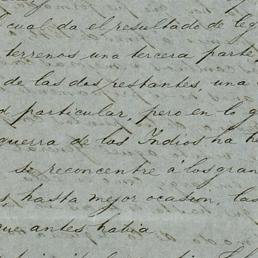 cual da el resultado de
terrenos una tercera parte
de las dos restantes, una
particular, pero en lo g
guerra de los Indios ha h
se reconcentre á los gran
hasta mejor ocasion, las
que antes habia